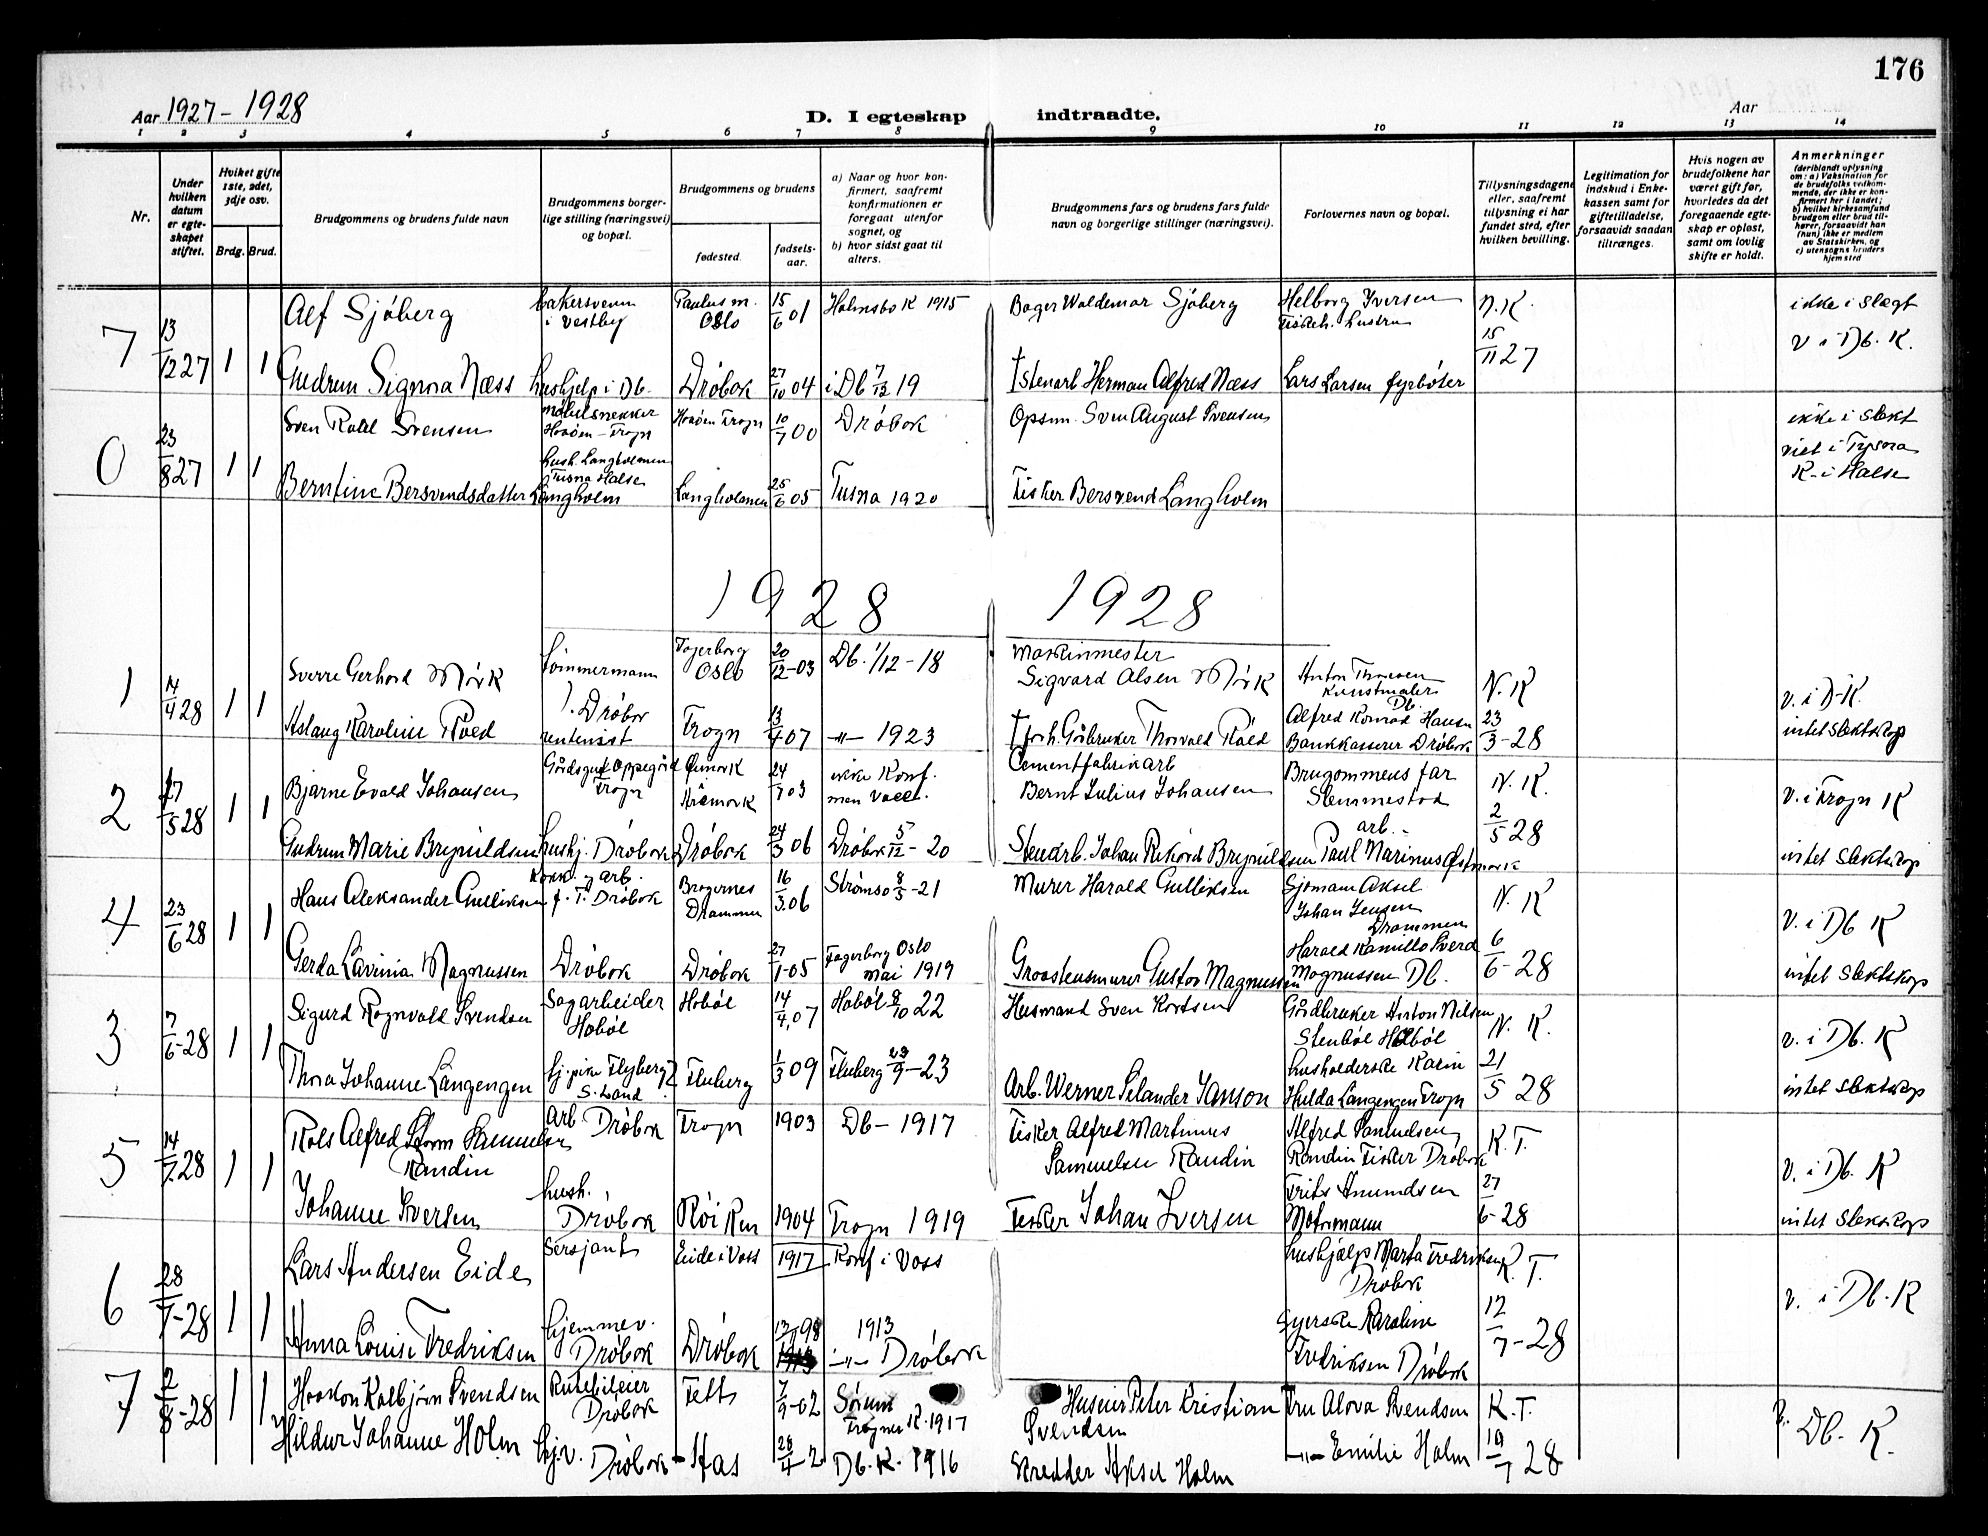 176
Aar 1927 – 1928
D. I egteskap indtraadte.
Aar
1 2 3 4 5 6 7 8 9 10 11 12 13 14
Nr.
Under hvilken datum er egteskapet stiftet.
Hvilket gifte 1ste, 2det, 3dje osv.
Brdg. Brud.
Brudgommens og brudens fulde navn
Brudgommens borgerlige stilling (næringsvei) og bopæl.
Brudgommens og brudens
fødested.
fødselsaar.
a) Naar og hvor konfirmert, saafremt konfirmationen er foregaat utenfor sognet, og
b) hvor sidst gaat til alters.
Brudgommens fars og brudens fars fulde navn og borgerlige stillinger (næringsvei).
Forlovernes navn og bopæl.
Tillysningsdagene eller, saafremt tillysning ei har fundet sted, efter hvilken bevilling.
Legitimation for indskud i Enkekassen samt for giftetilladelse, forsaavidt saadan tiltrænges.
Hvis nogen av brudefolkene har været gift før, hvorledes da det foregaaende egteskap er opløst, samt om lovlig skifte er holdt.
Anmerkninger
(deriblandt oplysning om: a) Vaksination for de brudefolks vedkommende, der ikke er konfirmert her i landet; b) hvilket kirkesamfund brudgom eller brud tilhører, forsaavidt han (hun) ikke er medlem av Statskirken, og c) utensogns bruders hjemsted
7 13/12 27 1 1
Alf Sjöberg bakersvenn i Vestby Paulus m. Oslo 15/6 01 Holmsbo K 1915 Bager Waldemar Sjöberg Helborg Iversen N.K. ikke i slegt
15/11 27 v i Db. K.
Gudrun Signora Næss hushjelp i Db. Dröbak 27/10 04 i Db 7/12 19 † Stenarb Herman Alfred Næss Lars Larsen fyrböter
0 23/8 27 1 1
Sven Rold Svensen möbelsnekker Haaöen – Frogn Haaöen Frogn 10/7 00 Dröbak Opsm. Sven August Svensen ikke i slekt
viet i
K. i Halse
Berntine Bersvendsdatter Langholm hush. Langholmen Tusna Halse Langholmen 25/6 05 Tusna 1920 Fisker Bersvend Langholm
1928 1928
1 14/4 28 1 1
Sverre Gerhard Mörk Tömmermann Fagerborg Oslo 20/12-03 Db. 1/12-18 Maskinmester Sigvard Olsen Mörk Anton Thoresen Kunstmaler Db. N. K
v. i D-K.
Aslaug Karoline Röed Dröbak rentenist Frogn 13/4 07 –"– 1923 † forh. Gårbruker Thorvald Röed Alfred Konrad Hansen Bankkasserer Dröbak 23/3-28 intet slektskap
2 27/5 28 1 1
Bjarne Evald Johansen Gårdsgut Oppegård Frogn 24/7 03 ikke Konf. men Vacc. Cementfabrikarb Bernt Julius Johansen Brugommens far Slemmestad N. K. v. i Frogn K
2/5 28
Gudrun Marie Brynildsen hushj. Dröbak Dröbak 24/3 06 Dröbak 5/12-20 Stenarb. Johan Rikard Brynildsen arb. Paul Marinus Östmork intet slektskap
4 23/6 28 1 1
Hans Aleksander Gulliksen f. T. Dröbak Bragernes Drammen 16/3.06 Strömsö 8/5-21 Murer Harald Gulliksen Sjömann Aksel Johan Jensen Drammen N. K
v. i Db K
Gerda Lavinia Magnussen Dröbak Dröbak 27/1-05 Fagerborg Oslo mai 1919 Graastensmurer Gustav Magnussen Harald Kamillo Sverd Magnussen Db. 6/6-28 intet slektskap
3 7/6-28 1 1
Sigurd Ragnvald Svendsen Sagarbeider Hobøl Hobøl 14/4.07 Hobøl 8/10 22 Husmand Sven Kortsen Gårdbruker Anton Nilsen Stenböl Hobøl N. K. v. i Db. K
Thora Johanne Langengen hj. pike Flyberg S. Land Fluberg 1/3 09 Fluberg 23/9-23 Arb. Werner Selander Janson husholderske Karin Hulda Langengen Frogn 21/5 28 intet slektskap
5 14/7.28 1 1
Rols Alfred Storm Samuelsen Randin Arb Dröbak Frogn 1903 Db – 1917 Fisker Alfred Martinus Sammelsen Randin Alfred Samuelsen Randin Fisker Dröbak K. T.
v. i Db. K
Johanne Iversen hush. Dröbak Röiken 1904 Frogn 1919 Fisker Johan Iversen Frits Amundsen Matrmann 27/6-28 intet slektskap
6 28/7-28 1 1
Lars Andersen Eide Sersjant Eide i Voss 1917 Konf i Voss hushjelp Marta Fredriksen Dröbak K. T.
v. i Db. K
Anna Louise Fredriksen hjemmev. Dröbak Dröbak 13/ 98 1913 –"– Dröbak Syerske Karoline Fredriksen Dröbak 12/7-28
7 2/8-28 1 1
Haakon Kolbjörn Svendsen Rutebileier Dröbak Fett 7/9-02 Frogner K. 1917 Peter Kristian Svendsen Fru Alova Svendsen K. T.
Db. K.
Hildur Johanne Holm hj.v. Dröbak Aas 28/4-2 Db. K. 1916 Skredder Aksel Holm –"– Emilie Holm 19/7 28